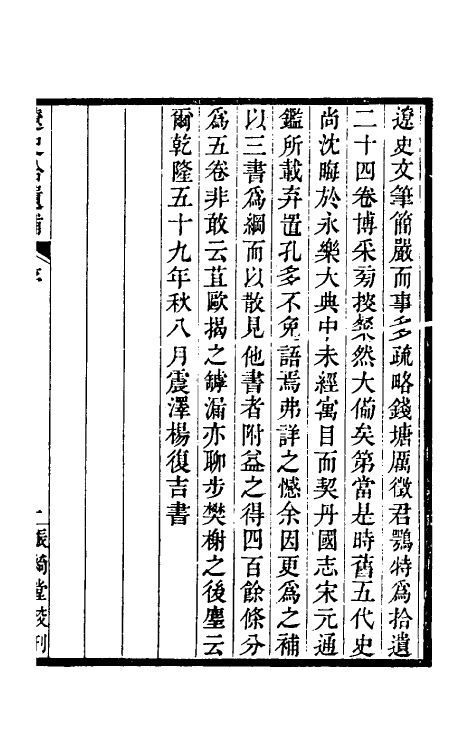 遼史文筆簡嚴而事多疏略錢塘厲徵君鶚特為拾遺
二十四卷博采㫄搜粲然大備矣第當是時舊五代史
尚沈晦於永樂大典中未經寓目而契丹國志宋元通
鑑所載弃置孔多不免語焉弗詳之憾余因更為之補
以三書為綱而以散見他書者附益之得四百餘條分
為五卷非敢云苴歐揭之罅漏亦聊步樊榭之後塵云
爾乾隆五十九年秋八月震澤楊復吉書
遼史拾遺補
序
一
振綺堂校刊